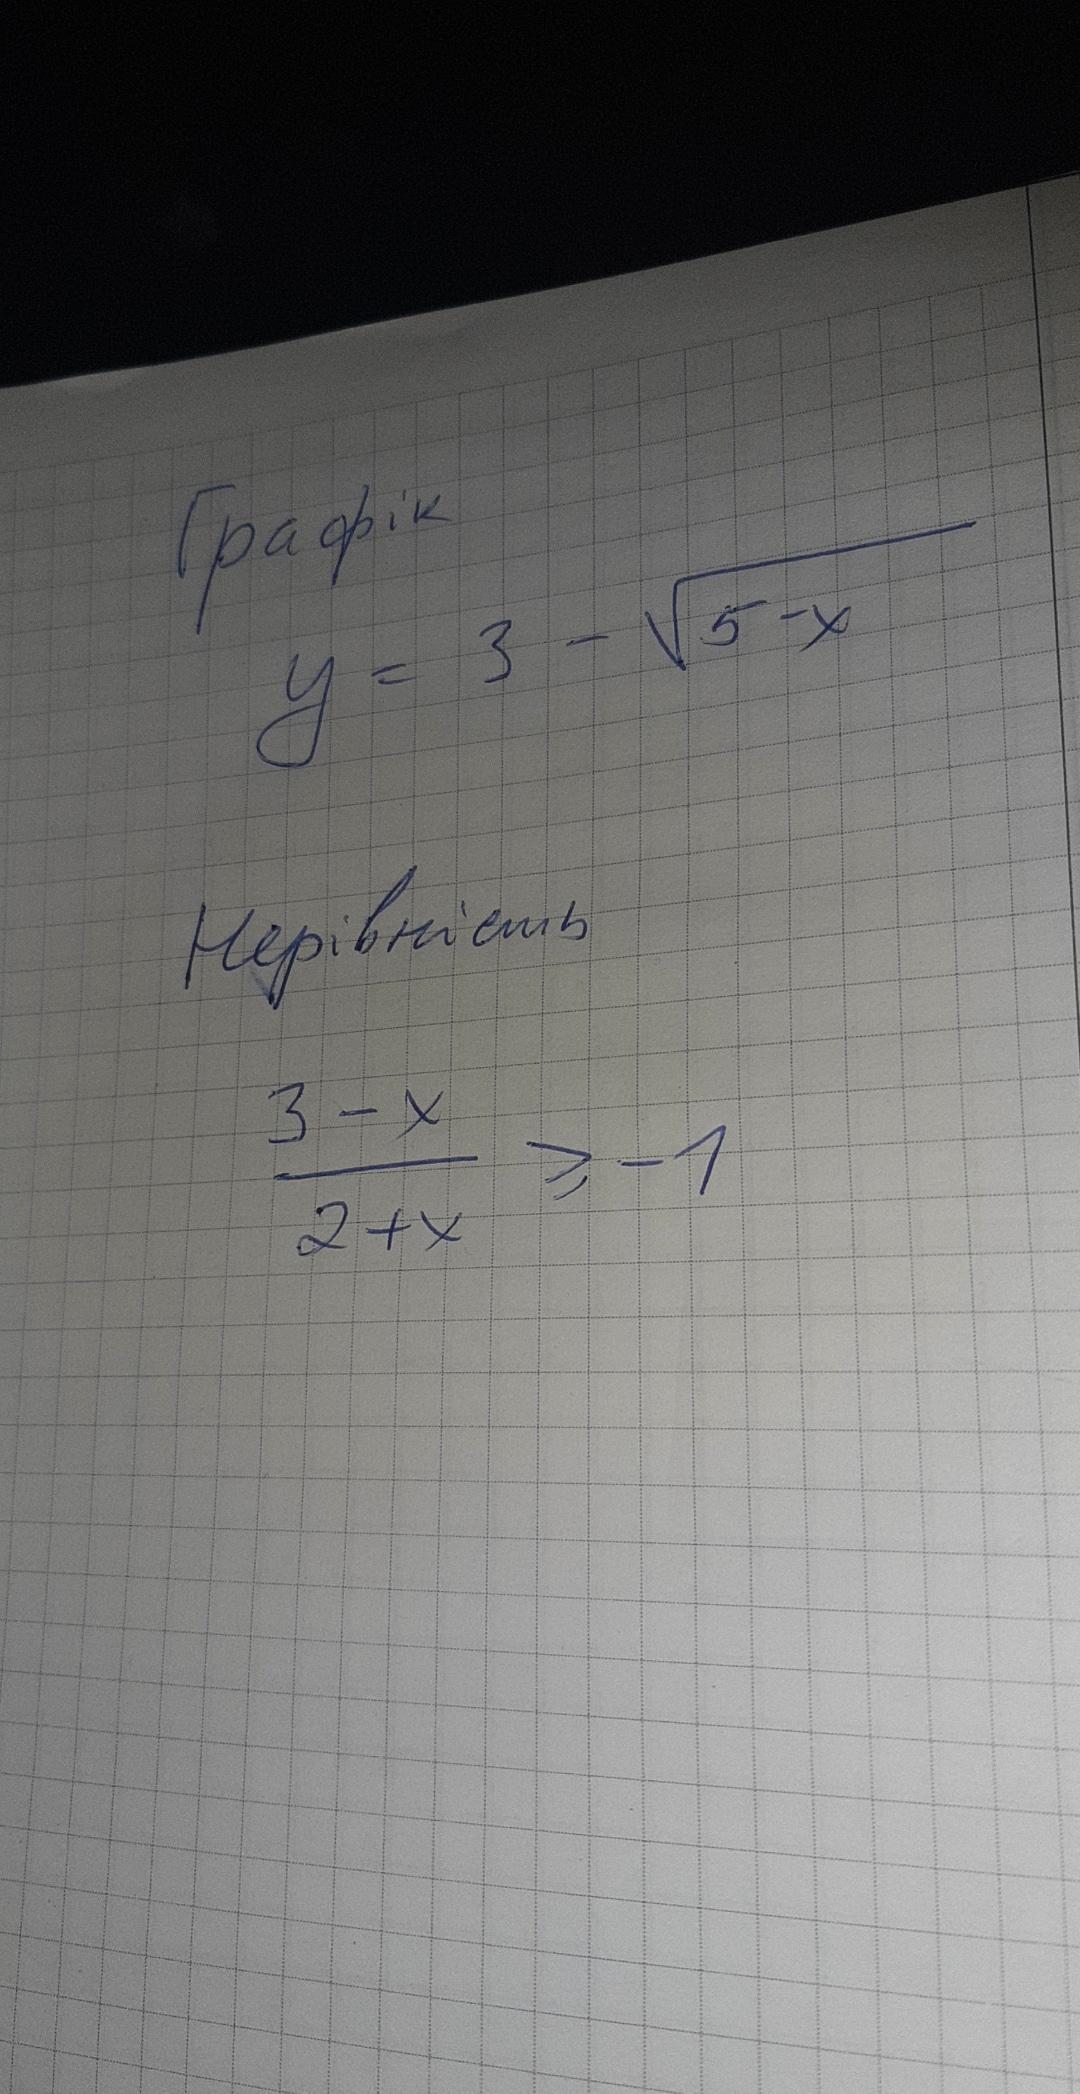 Графік
y = 3 - √(5-x)
Нерівність
3 - x
2 + x
⩾ -1